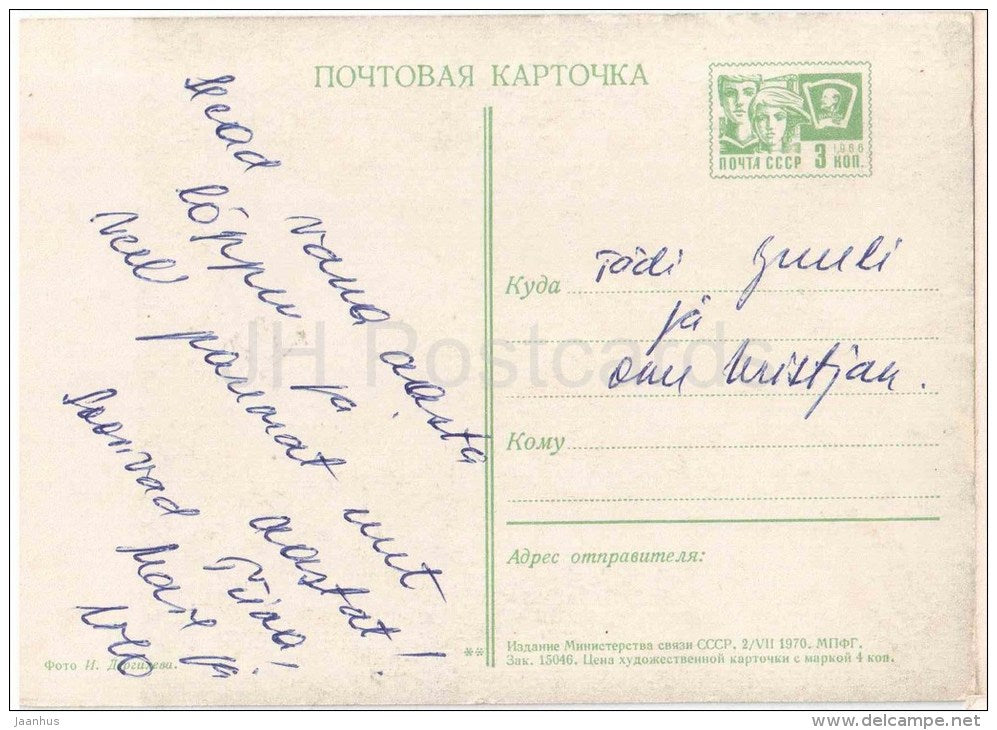 ПОЧТОВАЯ КАРТОЧКА
Head vana aasta
lõppu ja
veel paremat uut
aastat!
Soovad Tiina!
Mare ja
ПОЧТА СССР 3 КОП.
1966
Куда Tädi Juuli
ja
onu Kristjan.
Кому
Адрес отправителя:
Издание Министерства связи СССР. 2/VII 1970. МПФГ.
Зак. 15046. Цена художественной карточки с маркой 4 коп.
**
Фото И. Дергилева.
JH Postcards
jaanhus
www.delcampe.net